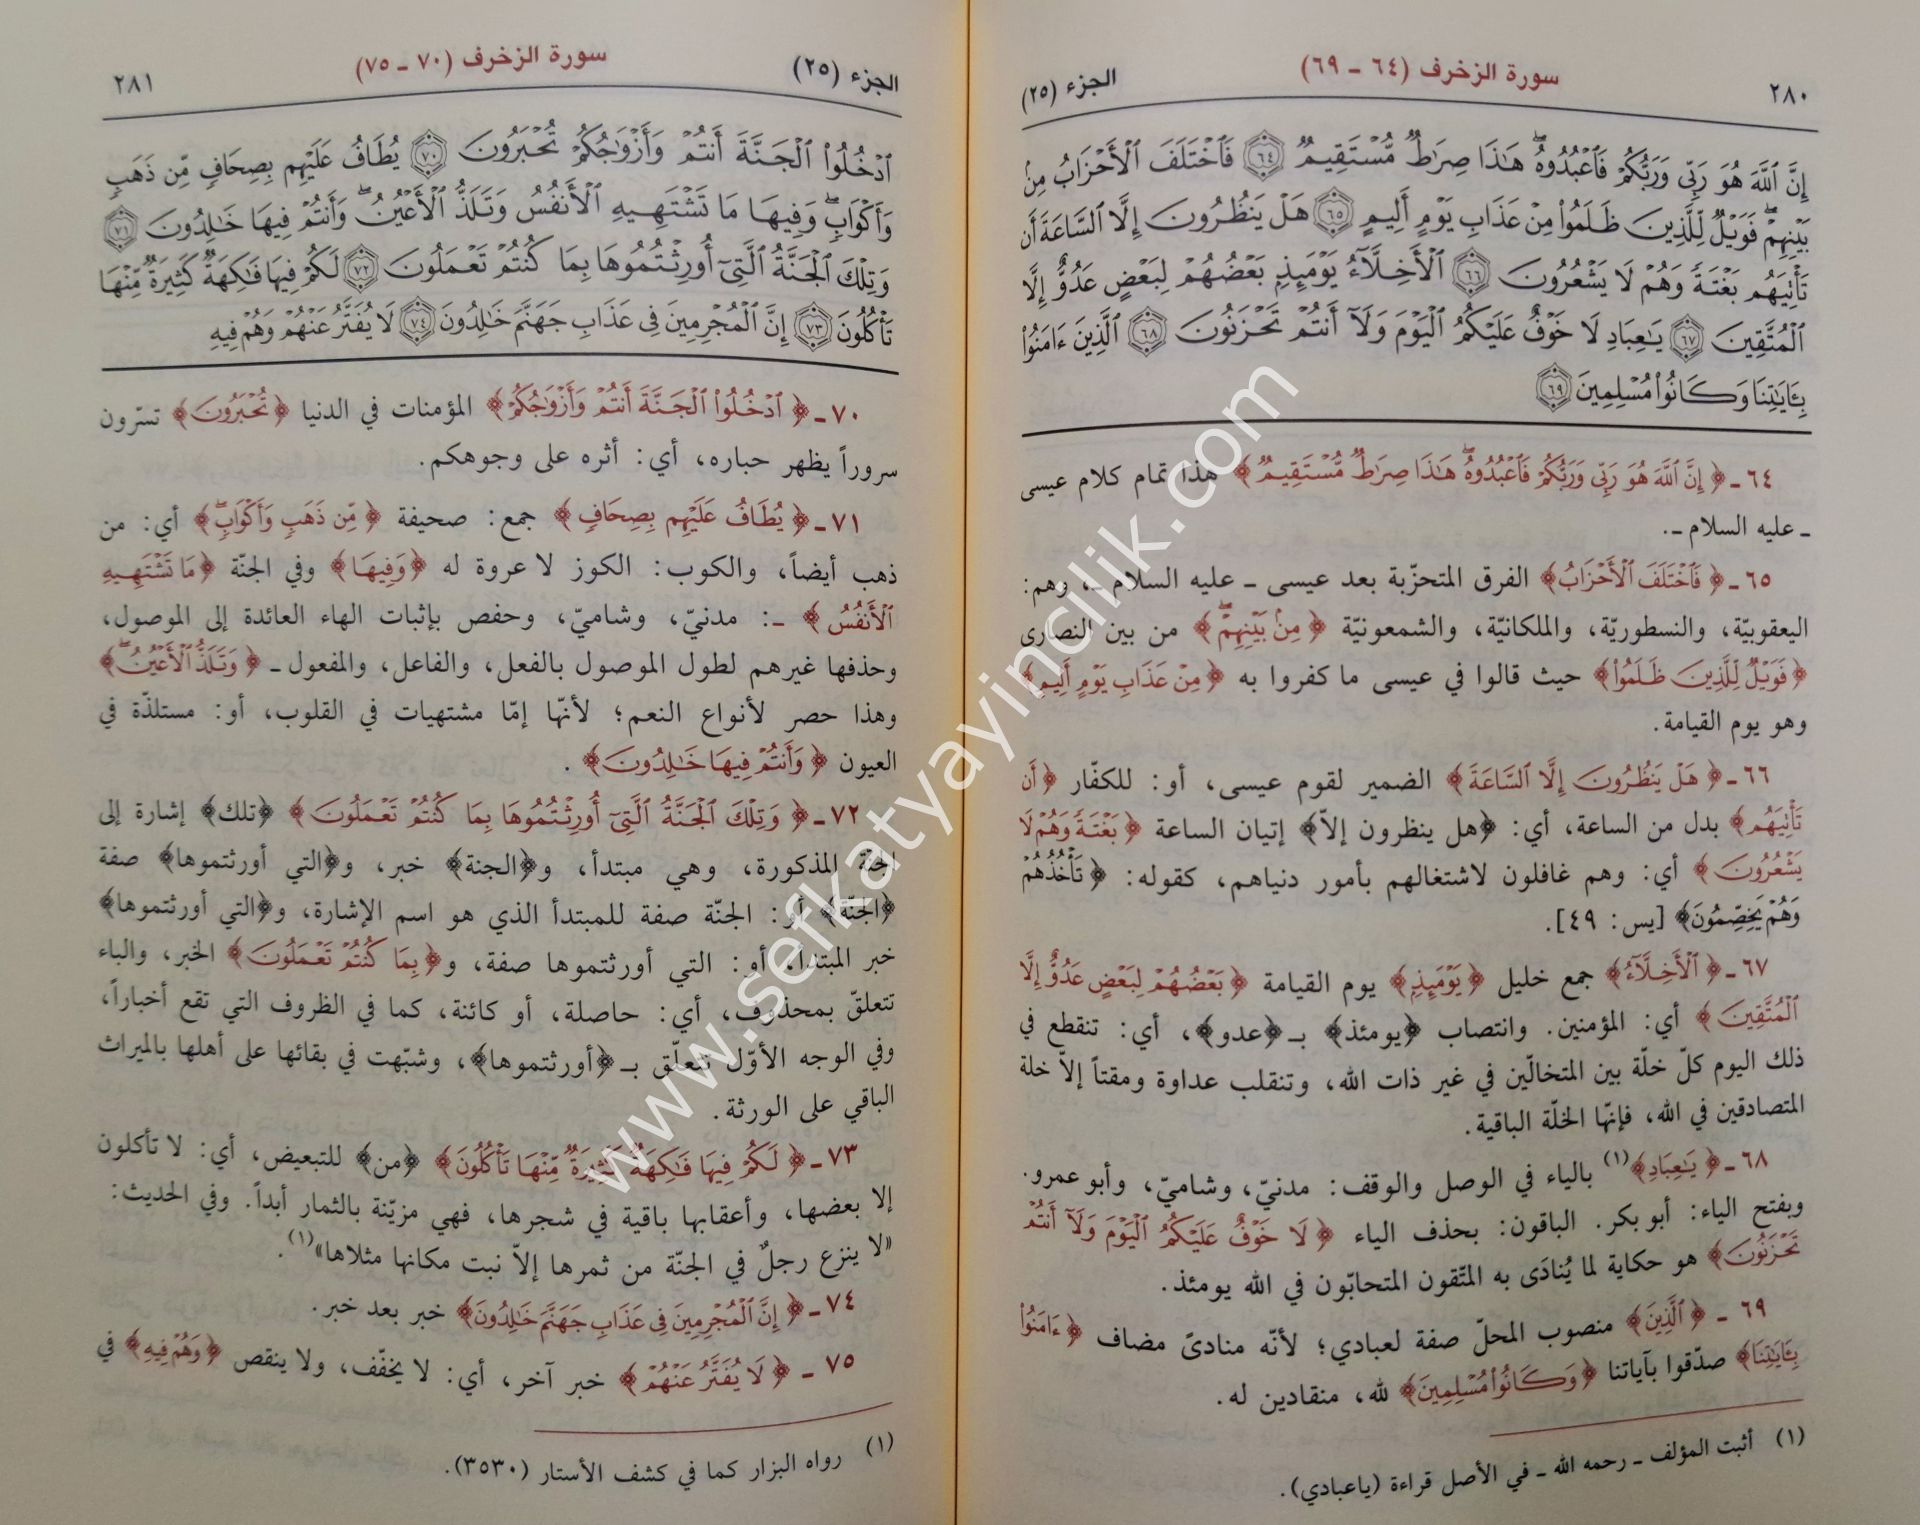 ٢٨٠
سورة الزخرف (٦٤ - ٦٩)
الجزء (٢٥)
إِنَّ ٱللَّهَ هُوَ رَبِّي وَرَبُّكُمْ فَٱعْبُدُوهُ ۚ هَٰذَا صِرَٰطٌ مُّسْتَقِيمٌ ﴿٦٤﴾ فَٱخْتَلَفَ ٱلْأَحْزَابُ مِنۢ
بَيْنِهِمْ ۖ فَوَيْلٌ لِّلَّذِينَ ظَلَمُوا۟ مِنْ عَذَابِ يَوْمٍ أَلِيمٍ ﴿٦٥﴾ هَلْ يَنظُرُونَ إِلَّا ٱلسَّاعَةَ أَن
تَأْتِيَهُم بَغْتَةً وَهُمْ لَا يَشْعُرُونَ ﴿٦٦﴾ ٱلْأَخِلَّآءُ يَوْمَئِذٍۭ بَعْضُهُمْ لِبَعْضٍ عَدُوٌّ إِلَّا
ٱلْمُتَّقِينَ ﴿٦٧﴾ يَٰعِبَادِ لَا خَوْفٌ عَلَيْكُمُ ٱلْيَوْمَ وَلَآ أَنتُمْ تَحْزَنُونَ ﴿٦٨﴾ ٱلَّذِينَ ءَامَنُوا۟
بِـَٔايَٰتِنَا وَكَانُوا۟ مُسْلِمِينَ ﴿٦٩﴾
٦٤ ـ ﴿إِنَّ ٱللَّهَ هُوَ رَبِّي وَرَبُّكُمْ فَٱعْبُدُوهُ ۚ هَٰذَا صِرَٰطٌ مُّسْتَقِيمٌ﴾ هذا تمام كلام عيسى
ـ عليه السلام ـ.
٦٥ ـ ﴿فَٱخْتَلَفَ ٱلْأَحْزَابُ﴾ الفرق المتحزّبة بعد عيسى ـ عليه السلام ـ، وهم:
اليعقوبيّة، والنسطوريّة، والملكانيّة، والشمعونيّة ﴿مِنۢ بَيْنِهِمْ ۖ﴾ من بين النصارى
﴿فَوَيْلٌ لِّلَّذِينَ ظَلَمُوا۟﴾ حيث قالوا في عيسى ما كفروا به ﴿مِنْ عَذَابِ يَوْمٍ أَلِيمٍ﴾
وهو يوم القيامة.
٦٦ ـ ﴿هَلْ يَنظُرُونَ إِلَّا ٱلسَّاعَةَ﴾ الضمير لقوم عيسى، أو: للكفّار ﴿أَن
تَأْتِيَهُم﴾ بدل من الساعة، أي: ﴿هل ينظرون إلاّ﴾ إتيان الساعة ﴿بَغْتَةً وَهُمْ لَا
يَشْعُرُونَ﴾ أي: وهم غافلون لاشتغالهم بأمور دنياهم، كقوله: ﴿تَأْخُذُهُمْ
وَهُمْ يَخِصِّمُونَ﴾ [يس: ٤٩].
٦٧ ـ ﴿ٱلْأَخِلَّآءُ﴾ جمع خليل ﴿يَوْمَئِذٍۭ﴾ يوم القيامة ﴿بَعْضُهُمْ لِبَعْضٍ عَدُوٌّ إِلَّا
ٱلْمُتَّقِينَ﴾ أي: المؤمنين. وانتصاب ﴿يومئذ﴾ بـ﴿عدو﴾، أي: تنقطع في
ذلك اليوم كلّ خلّة بين المتخالّين في غير ذات الله، وتنقلب عداوة ومقتاً إلاّ خلة
المتصادقين في الله، فإنّها الخلّة الباقية.
٦٨ ـ ﴿يَٰعِبَادِ﴾(١) بالياء في الوصل والوقف: مدنيّ، وشاميّ، وأبو عمرو.
وبفتح الياء: أبو بكر. الباقون: بحذف الياء ﴿لَا خَوْفٌ عَلَيْكُمُ ٱلْيَوْمَ وَلَآ أَنتُمْ
تَحْزَنُونَ﴾ هو حكاية لما يُنادَى به المتّقون المتحابّون في الله يومئذ.
٦٩ ـ ﴿ٱلَّذِينَ﴾ منصوب المحلّ صفة لعبادي؛ لأنّه منادىً مضاف ﴿ءَامَنُوا۟
بِـَٔايَٰتِنَا﴾ صدّقوا بآياتنا ﴿وَكَانُوا۟ مُسْلِمِينَ﴾ لله، منقادين له.
(١) أثبت المؤلف ـ رحمه الله ـ في الأصل قراءة (ياعبادي).
الجزء (٢٥)
سورة الزخرف (٧٠ - ٧٥)
٢٨١
ٱدْخُلُوا۟ ٱلْجَنَّةَ أَنتُمْ وَأَزْوَٰجُكُمْ تُحْبَرُونَ ﴿٧٠﴾ يُطَافُ عَلَيْهِم بِصِحَافٍ مِّن ذَهَبٍ
وَأَكْوَابٍ ۖ وَفِيهَا مَا تَشْتَهِيهِ ٱلْأَنفُسُ وَتَلَذُّ ٱلْأَعْيُنُ ۖ وَأَنتُمْ فِيهَا خَٰلِدُونَ ﴿٧١﴾
وَتِلْكَ ٱلْجَنَّةُ ٱلَّتِىٓ أُورِثْتُمُوهَا بِمَا كُنتُمْ تَعْمَلُونَ ﴿٧٢﴾ لَكُمْ فِيهَا فَٰكِهَةٌ كَثِيرَةٌ مِّنْهَا
تَأْكُلُونَ ﴿٧٣﴾ إِنَّ ٱلْمُجْرِمِينَ فِى عَذَابِ جَهَنَّمَ خَٰلِدُونَ ﴿٧٤﴾ لَا يُفَتَّرُ عَنْهُمْ وَهُمْ فِيهِ
٧٠ ـ ﴿ٱدْخُلُوا۟ ٱلْجَنَّةَ أَنتُمْ وَأَزْوَٰجُكُمْ﴾ المؤمنات في الدنيا ﴿تُحْبَرُونَ﴾ تسّرون
سروراً يظهر حباره، أي: أثره على وجوهكم.
٧١ ـ ﴿يُطَافُ عَلَيْهِم بِصِحَافٍ﴾ جمع: صحيفة ﴿مِّن ذَهَبٍ وَأَكْوَابٍ ۖ﴾ أي: من
ذهب أيضاً، والكوب: الكوز لا عروة له ﴿وَفِيهَا﴾ وفي الجنّة ﴿مَا تَشْتَهِيهِ
ٱلْأَنفُسُ﴾ ـ: مدنيّ، وشاميّ، وحفص بإثبات الهاء العائدة إلى الموصول،
وحذفها غيرهم لطول الموصول بالفعل، والفاعل، والمفعول ـ ﴿وَتَلَذُّ ٱلْأَعْيُنُ ۖ﴾
وهذا حصر لأنواع النعم؛ لأنّها إمّا مشتهيات في القلوب، أو: مستلذّة في
العيون ﴿وَأَنتُمْ فِيهَا خَٰلِدُونَ﴾.
٧٢ ـ ﴿وَتِلْكَ ٱلْجَنَّةُ ٱلَّتِىٓ أُورِثْتُمُوهَا بِمَا كُنتُمْ تَعْمَلُونَ﴾ ﴿تلك﴾ إشارة إلى
الجنّة المذكورة، وهي مبتدأ، و﴿الجنة﴾ خبر، و﴿التي أورثتموها﴾ صفة
﴿الجنّة﴾ أو: الجنّة صفة للمبتدأ الذي هو اسم الإشارة، و﴿التي أورثتموها﴾
خبر المبتدأ، أو: التي أورثتموها صفة، و﴿بِمَا كُنتُمْ تَعْمَلُونَ﴾ الخبر، والباء
تتعلّق بمحذوف، أي: حاصلة، أو كائنة، كما في الظروف التي تقع أخباراً،
وفي الوجه الأوّل تتعلّق بـ﴿أورثتموها﴾، وشبّهت في بقائها على أهلها بالميراث
الباقي على الورثة.
٧٣ ـ ﴿لَكُمْ فِيهَا فَٰكِهَةٌ كَثِيرَةٌ مِّنْهَا تَأْكُلُونَ﴾ ﴿من﴾ للتبعيض، أي: لا تأكلون
إلا بعضها، وأعقابها باقية في شجرها، فهي مزيّنة بالثمار أبداً. وفي الحديث:
«لا ينزع رجلٌ في الجنّة من ثمرها إلاّ نبت مكانها مثلاها»(١).
٧٤ ـ ﴿إِنَّ ٱلْمُجْرِمِينَ فِى عَذَابِ جَهَنَّمَ خَٰلِدُونَ﴾ خبر بعد خبر.
٧٥ ـ ﴿لَا يُفَتَّرُ عَنْهُمْ﴾ خبر آخر، أي: لا يخفّف، ولا ينقص ﴿وَهُمْ فِيهِ﴾ في
(١) رواه البزار كما في كشف الأستار (٣٥٣٠).
www.sefkatyayincilik.com